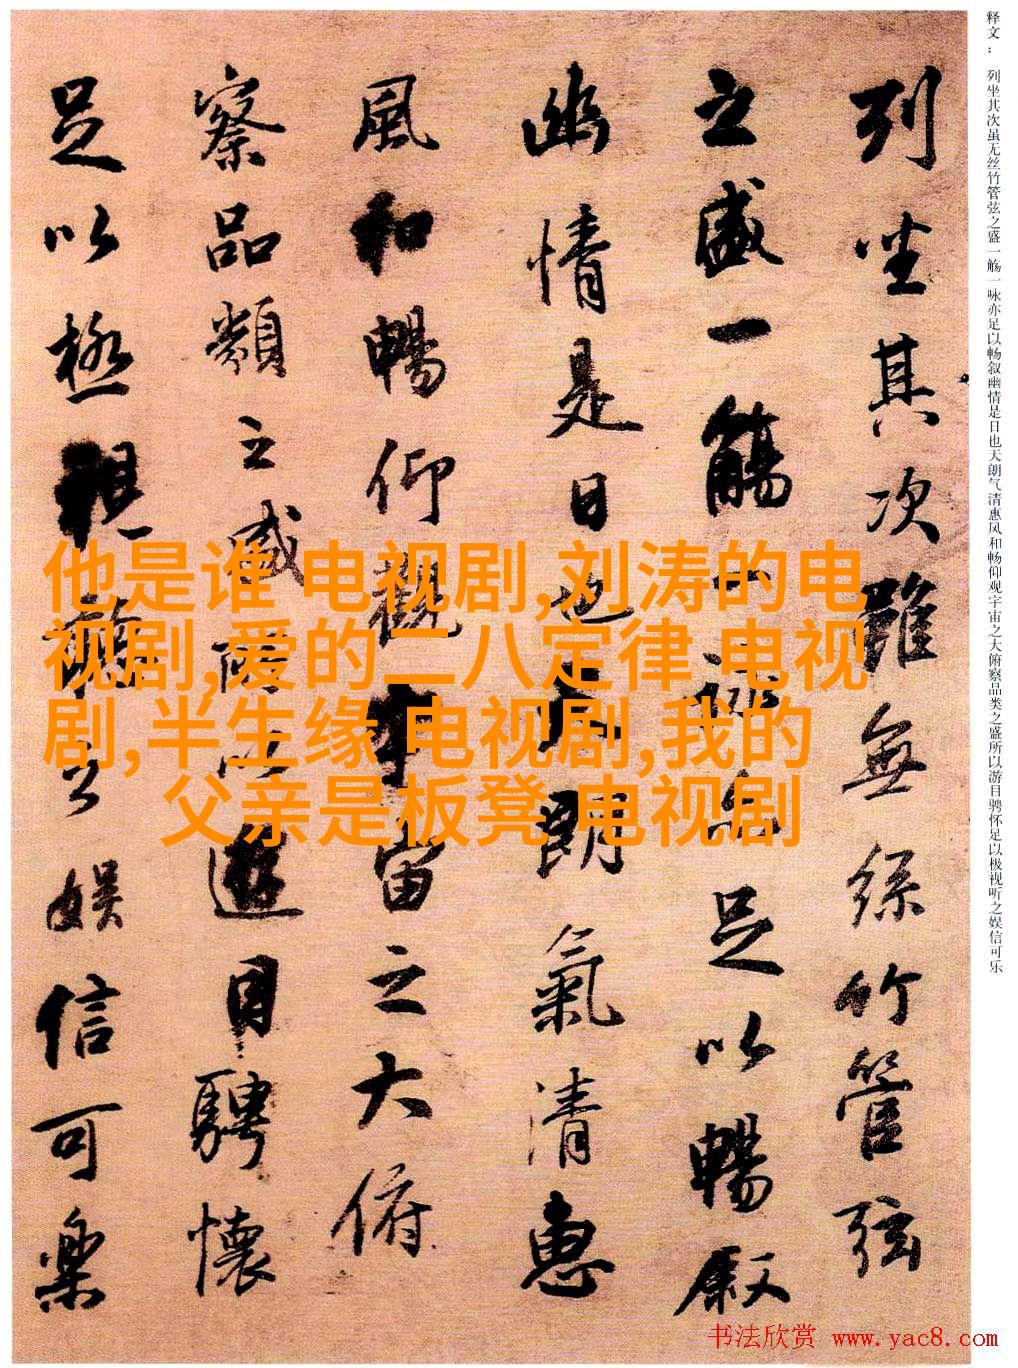 释文： 列坐其次虽无丝竹管弦之盛一觞一咏亦足以畅叙幽情是日也天朗气清惠风和畅仰观宇宙之大俯察品类之盛所以游目骋怀足以极视听之娱信可乐
列坐其次雖無絲竹管弦
之盛一觴一詠亦足以暢叙
幽情是日也天朗氣清惠
風和暢仰觀宇宙之大俯
察品類之盛所以遊目騁懷
足以極視聽之娛信可樂
他是谁 电视剧,刘涛的电
视剧,爱的二八定律 电视
剧,半生缘 电视剧,我的
父亲是板凳 电视剧
书法欣赏 www.yac8.com